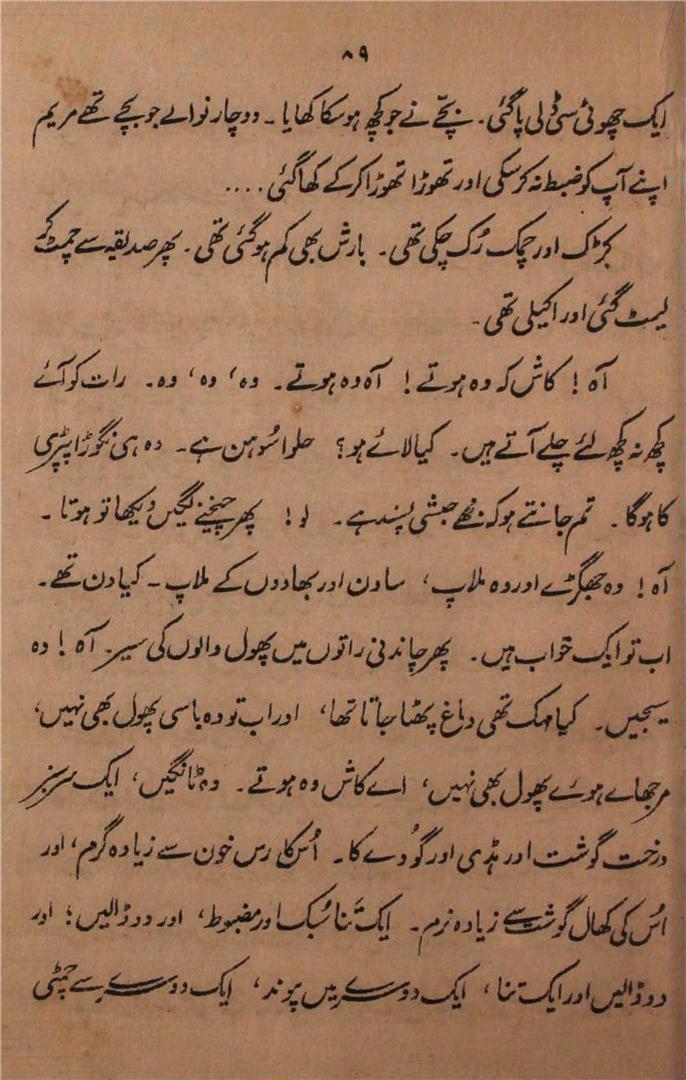 ۸۹
ایک چھوٹی سی ڈلی پا گئی۔ بچّے نے جو کچھ ہو سکا کھایا۔ دو چار نوالے جو بچے تھے مریم
اپنے آپ کو ضبط نہ کر سکی اور تھوڑا تھوڑا کر کے کھا گئی....
کڑک اور چمک رُک چکی تھی۔ بارش بھی کم ہو گئی تھی۔ پھر صدیقہ سے چمٹ کر
لیٹ گئی اور اکیلی تھی۔
آہ! کاش کہ وہ ہوتے! آہ وہ ہوتے۔ وہ، وہ، وہ۔ رات کو آئے
کچھ نہ کچھ لئے چلے آتے ہیں۔ کیا لائے ہو؟ حلوا سُوہن ہے۔ وہ ہی نگوڑا پپٹری
کا ہوگا۔ تم جانتے ہو کہ مجھے حبشی پسند ہے۔ لو! پھر چیخنے لگیں دیکھا تو ہوتا۔
آہ! وہ جھگڑے اور وہ ملاپ، ساون اور بھادوں کے ملاپ۔ کیا دن تھے۔
اب تو ایک خواب ہیں۔ پھر چاندنی راتوں میں پھول والوں کی سیر۔ آہ! وہ
سیجیں۔ کیا مہک تھی دماغ پھٹا جاتا تھا، اور اب تو وہ باسی پھول بھی نہیں،
مرجھاے ہوئے پھول بھی نہیں، اے کاش وہ ہوتے۔ وہ ٹانگیں، ایک سرسبز
درخت گوشت اور ہڈی اور گُودے کا۔ اُس کا رس خون سے زیادہ گرم، اور
اُس کی کھال گوشت سے زیادہ نرم۔ ایک تَنا سُبک اور مضبوط، اور دو ڈالیں؛ اور
دو ڈالیں اور ایک تنا، ایک دوسرے میں پوند، ایک دوسرے سے چمٹی